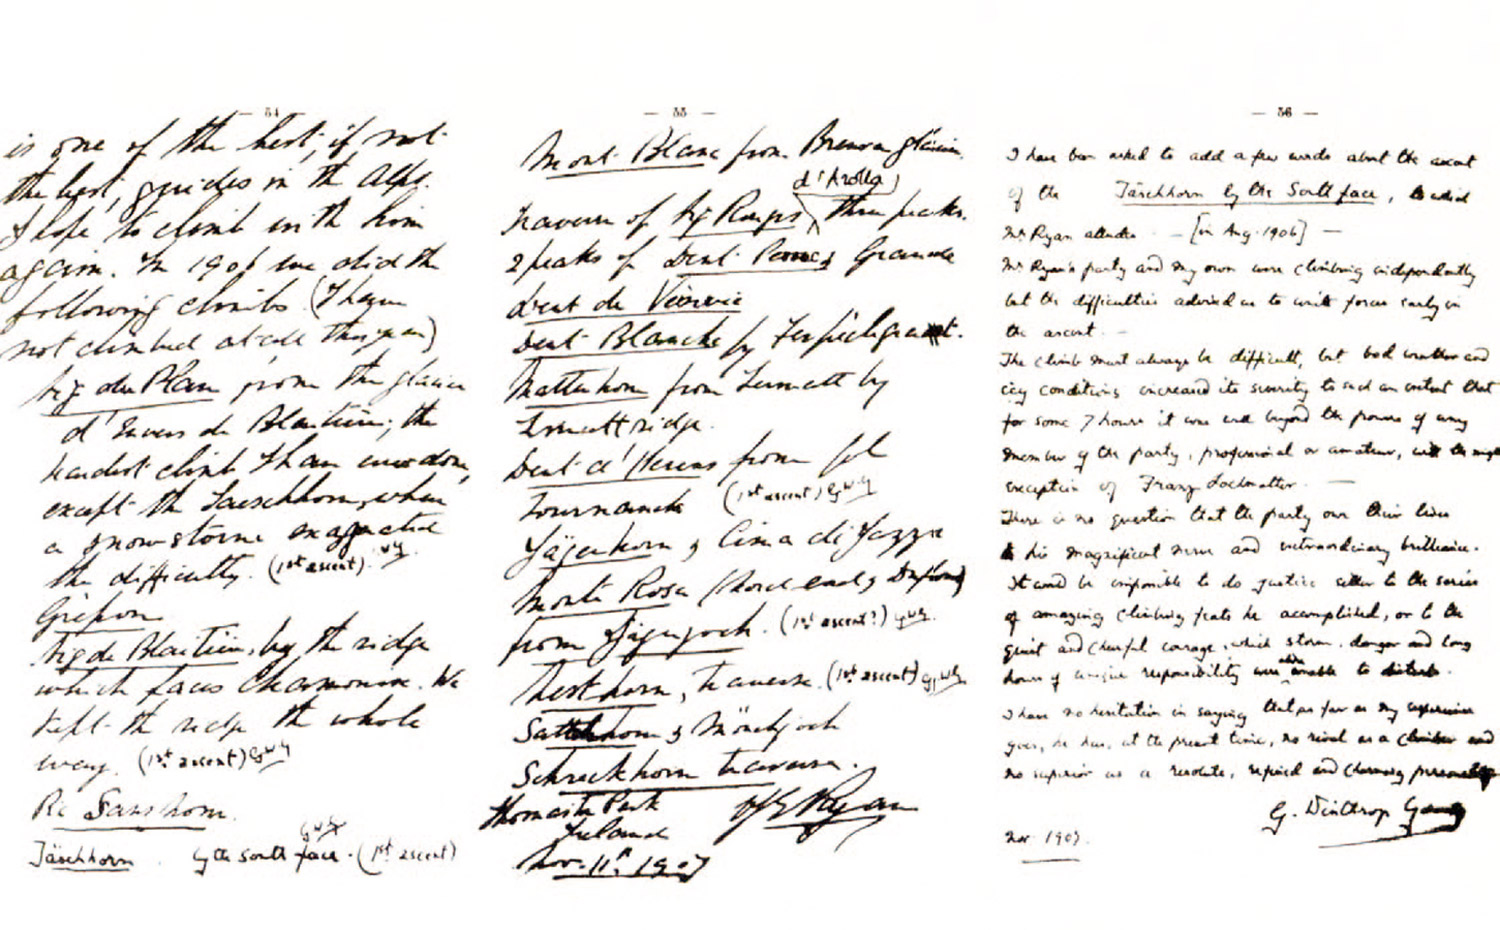 — 54
is one of the best, if not
the best, guides in the Alps.
I hope to climb with him
again. In 1906 we did the
following climbs (I have
not climbed at all this year)
Aig du Plan from the glacier
d'Envers de Blaitière; the
hardest climb I have ever done,
except the Taeschhorn, when
a snowstorm
the difficulty. (1st ascent).
Grépon
Aig de Blaitière, by the ridge
which faces Chamonix. We
kept the ridge the whole
way. (1st ascent) G.W.Y
Täschhorn. by the South face. (1st ascent)
G.W.Y
— 55 —
Mont Blanc from Brenva glacier.
d'Arolla)
Traverse of Aig Rouges three peaks.
2 peaks of Dent Grande
dent de Veisivi
Dent Blanche by
Matterhorn from Zermatt by
Zmutt ridge.
Dent d'Herens from Col
Tournanche (1st ascent) G.W.Y
Jägerhorn & Cima di Jazzi
Monte Rosa (Nord end & Dufour)
from Jägerjoch. (1st ascent?) G.W.Y.
Nesthorn, traverse. (1st ascent) G.W.Y.
Sattelhorn & Mönchjoch
Schreckhorn traverse.
Thomaston Park V J E Ryan
Ireland
Nov. 11th 1907
— 56 —
I have been asked to add a few words about the ascent
of the Täschhorn by the South face, to which
Mr Ryan alludes — [in Aug. 1906] —
Mr Ryan's party and my own were climbing independently
but the difficulties advised us to unite forces early in
the ascent. —
The climb must always be difficult, but bad weather and
icy conditions increased its severity to such an extent that
for some 7 hours it was well beyond the powers of any
member of the party, professional or amateur, with the single
exception of Franz Lochmatter. —
There is no question that the party owe their lives
to his magnificent nerve and extraordinary brilliance.
It would be impossible to do justice either to the series
of amazing climbing feats he accomplished, or to the
quiet and cheerful courage, which storm, danger and long
hours of unique responsibility were unable to disturb.
I have no hesitation in saying that as far as my experience
goes, he has, at the present time, no rival as a climber and
no superior as a resolute, refined and charming personality
G. Winthrop Young
Nov 1907.